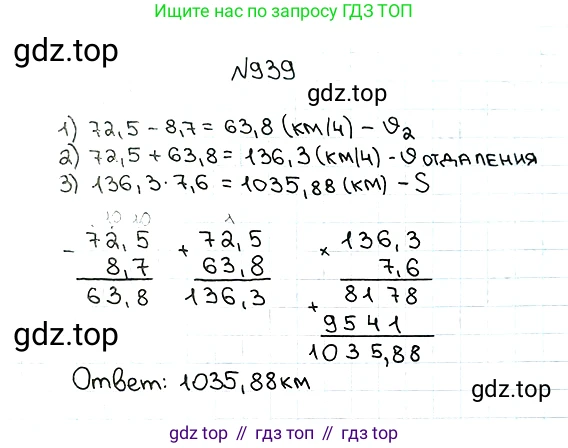 Ищите нас по запросу ГДЗ ТОП
gdz.top
№939
gdz.top
1) 72,5 - 8,7 = 63,8 (км/ч) - υ₂
2) 72,5 + 63,8 = 136,3 (км/ч) - υ отдаления
3) 136,3 · 7,6 = 1035,88 (км) - S
10 10 1
- 72,5 + 72,5 × 136,3
8,7 63,8 7,6
63,8 136,3 8178
+ 9541
1035,88
gdz.top
Ответ: 1035,88 км
gdz.top
gdz.top // гдз топ // гдз.топ